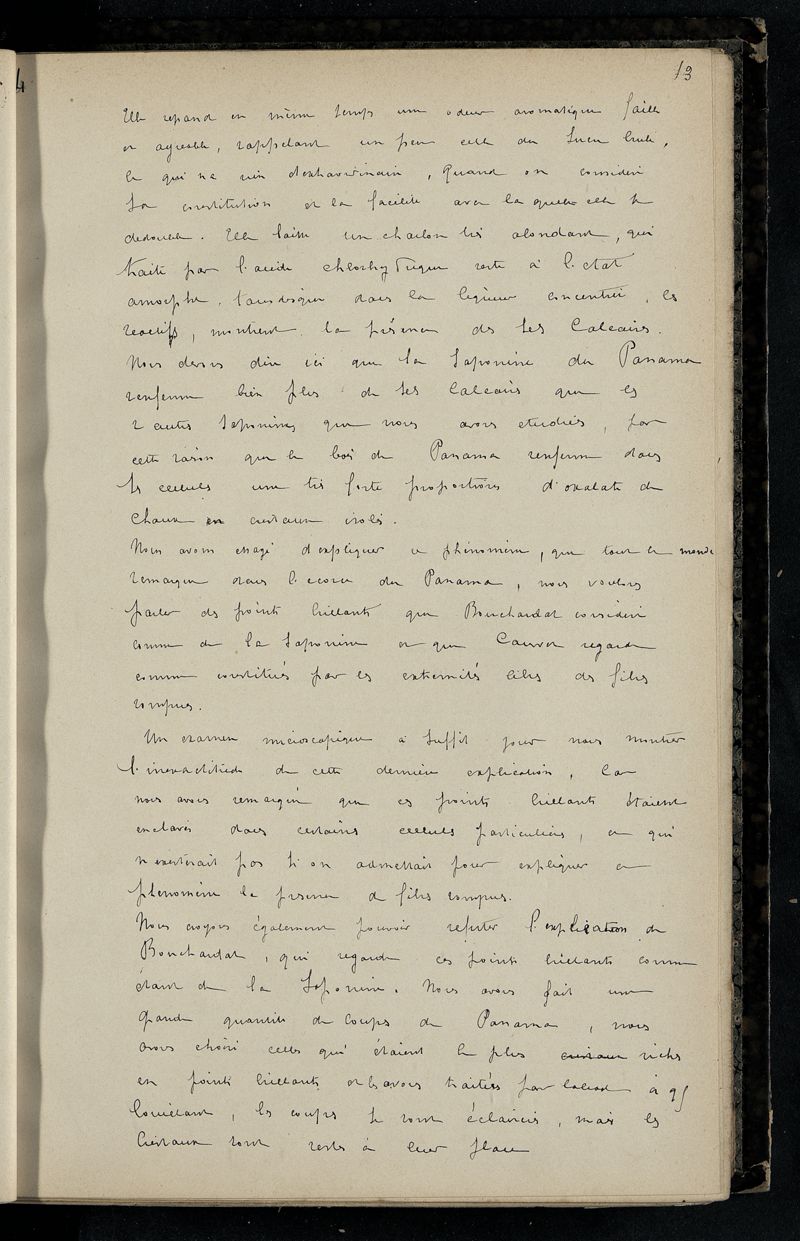 13
Elle repand en même temps une odeur aromatique faible
et agreable, rappelant un peu celle du Sucre brulé,
ce qui n'a rien d'extraordinaire, quand on considère
sa constitution et la facilité avec laquelle elle se
dedouble. Elle laisse un charbon très abondant, qui
traité par l'acide chlorhydrique reste à l'etat
amorphe, tandis que dans la liqueur concentrée, les
reactifs, montrent la présence des sels Calcaires.
Nous devons dire ici que la Saponine du Panama
renferme bien plus de sels Calcaires que les
2 autres Saponines que nous avons etudiées, par
cette raison que le bois de Panama renferme dans
ses cellules une très forte proportions d'oxalate de
Chaux en cristaux isolés.
Nous avons essayé d'expliquer ce phénomène, que tout le monde
remarque dans l'ecorce du Panama, nous voulons
parler des points brillants que Bouchardat considère
comme de la Saponine et que Cauvet regarde
comme constitués par les extremités libres des fibres
rompues.
Un examen microscopique a suffit pour nous montrer
l'inexactitude de cette dernière explication, car
nous avons remarqué que ces points brillants étaient
enclavés dans certaines cellules particulières, ce qui
n'existerait pas si on admettait pour expliquer ce
phenomène la presence de fibres rompues.
Nous croyons également pouvoir refuter l'explication de
Bouchardat, qui regarde ces points brillants comme
étant de la Saponine. Nous avons fait une
grande quantité de coupes de Panama, nous
avons choisi celles qui étaient le plus cristaux riches
en points brillants et les avons traitées par l'alcool à 95
bouillant, les coupes se sont éclaircies, mais les
Cristaux sont restés à leur place